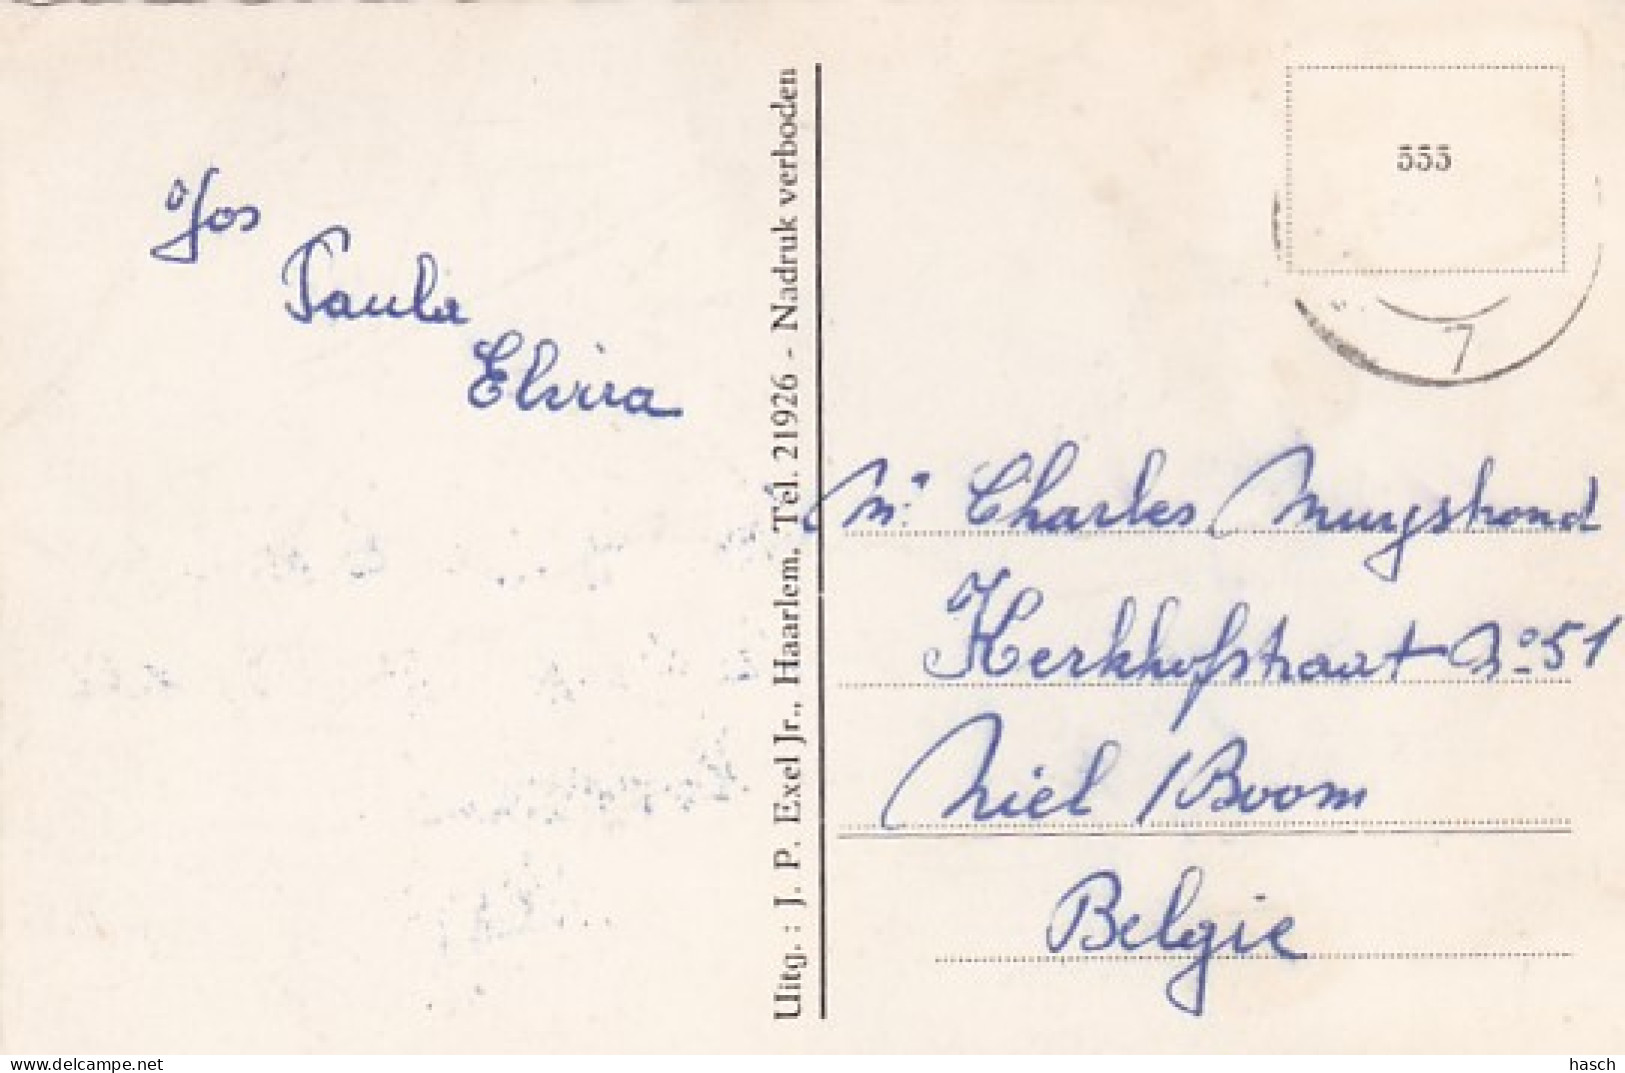 Jos
Paula
Elvira
Uitg.: J. P. Exel Jr., Haarlem. Tel. 21926 - Nadruk verboden
555
7
Mr. Charles
Kerkhofstraat No 51
Niel / Boom
Belgie
hasch
delcampe.net